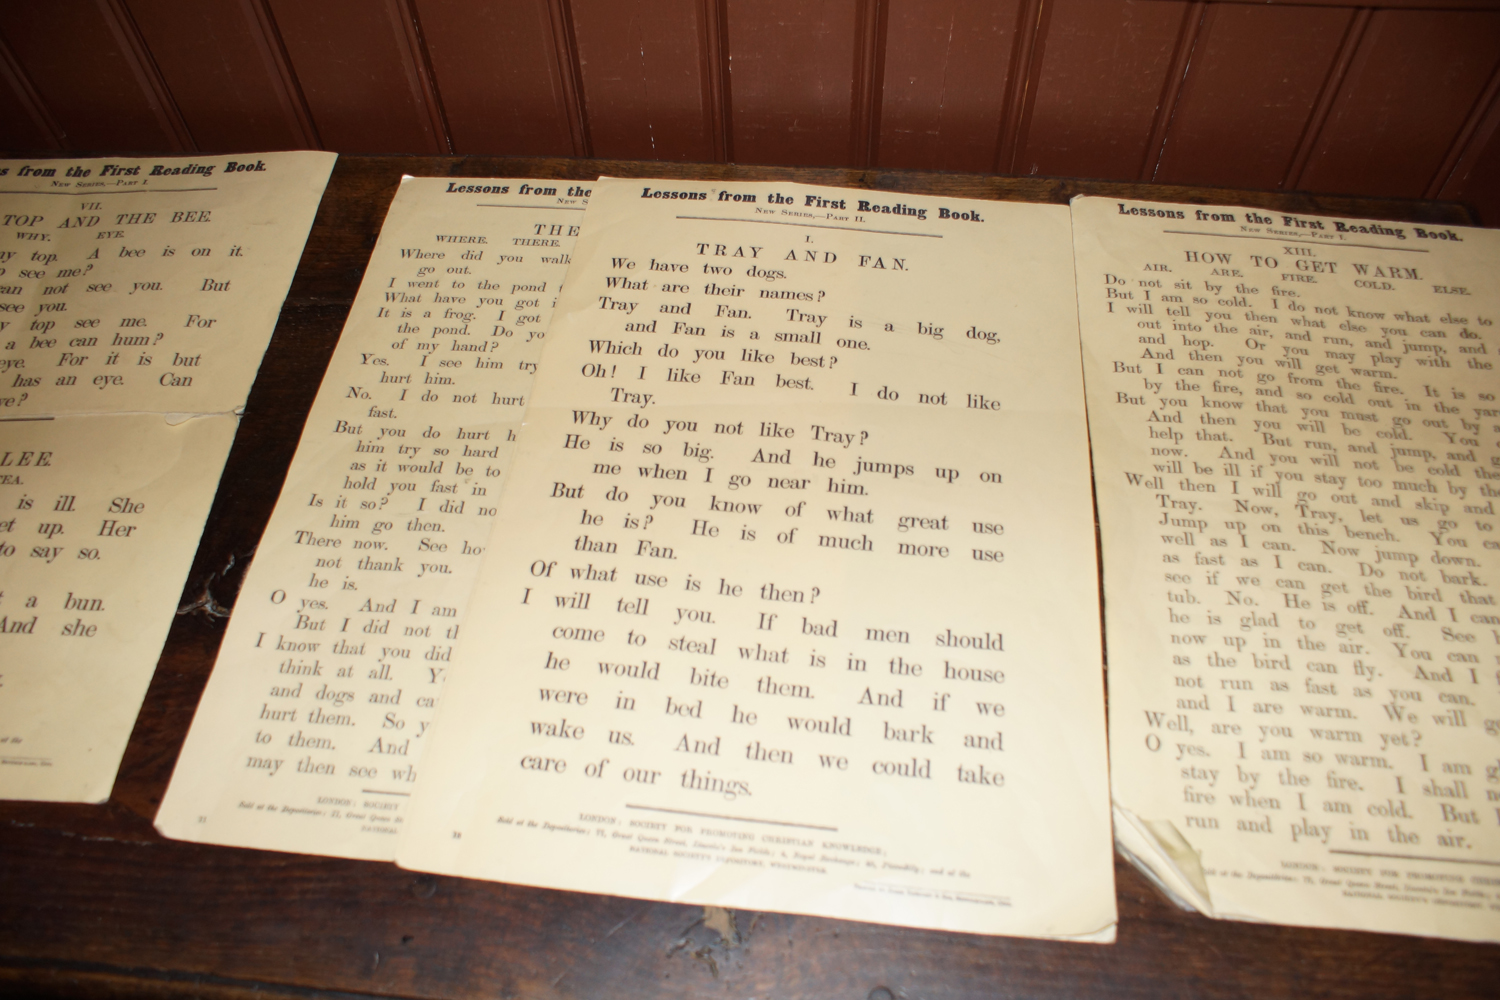 s from the First Reading Book.
New Series,—Part I.
VII.
TOP AND THE BEE.
WHY. EYE.
y top. A bee is on it.
see me?
an not see you. But
see you.
y top see me. For
a bee can hum?
eye. For it is but
has an eye. Can
ve?
LEE.
TEA.
is ill. She
et up. Her
to say so.
a bun.
And she
Lessons from the
New S
THE
WHERE. THERE.
Where did you walk
go out.
I went to the pond
What have you got i
It is a frog. I got
the pond. Do yo
of my hand?
Yes. I see him try
hurt him.
No. I do not hurt
fast.
But you do hurt h
him try so hard
as it would be to
hold you fast in
Is it so? I did no
him go then.
There now. See ho
not thank you.
he is.
O yes. And I am
But I did not th
I know that you did
think at all. Y
and dogs and ca
hurt them. So y
to them. And
may then see wh
LONDON: SOCIETY
21
Lessons from the First Reading Book.
New Series,—Part II.
I.
TRAY AND FAN.
We have two dogs.
What are their names?
Tray and Fan. Tray is a big dog,
and Fan is a small one.
Which do you like best?
Oh! I like Fan best. I do not like
Tray.
Why do you not like Tray?
He is so big. And he jumps up on
me when I go near him.
But do you know of what great use
he is? He is of much more use
than Fan.
Of what use is he then?
I will tell you. If bad men should
come to steal what is in the house
he would bite them. And if we
were in bed he would bark and
wake us. And then we could take
care of our things.
LONDON: SOCIETY FOR PROMOTING CHRISTIAN KNOWLEDGE;
Sold at the Depositories: 77, Great Queen Street, Lincoln's Inn Fields; 4, Royal Exchange; 48, Piccadilly; and at the
NATIONAL SOCIETY'S DEPOSITORY, WESTMINSTER.
Lessons from the First Reading Book.
New Series,—Part I.
XIII.
HOW TO GET WARM.
AIR. ARE. FIRE. COLD. ELSE.
Do not sit by the fire.
But I am so cold. I do not know what else to
I will tell you then what else you can do.
out into the air, and run, and jump, and
and hop. Or you may play with the
And then you will get warm.
But I can not go from the fire. It is so
by the fire, and so cold out in the yar
But you know that you must go out by a
And then you will be cold. You
help that. But run, and jump, and g
now. And you will not be cold the
will be ill if you stay too much by the
Well then I will go out and skip and
Tray. Now, Tray, let us go to
Jump up on this bench. You ca
well as I can. Now jump down.
as fast as I can. Do not bark.
see if we can get the bird that
tub. No. He is off. And I can
he is glad to get off. See
now up in the air. You can
as the bird can fly. And I
not run as fast as you can.
and I are warm. We will g
Well, are you warm yet?
O yes. I am so warm. I am g
stay by the fire. I shall n
fire when I am cold. But
run and play in the air.
LONDON: SOCIETY FOR PROMOTING